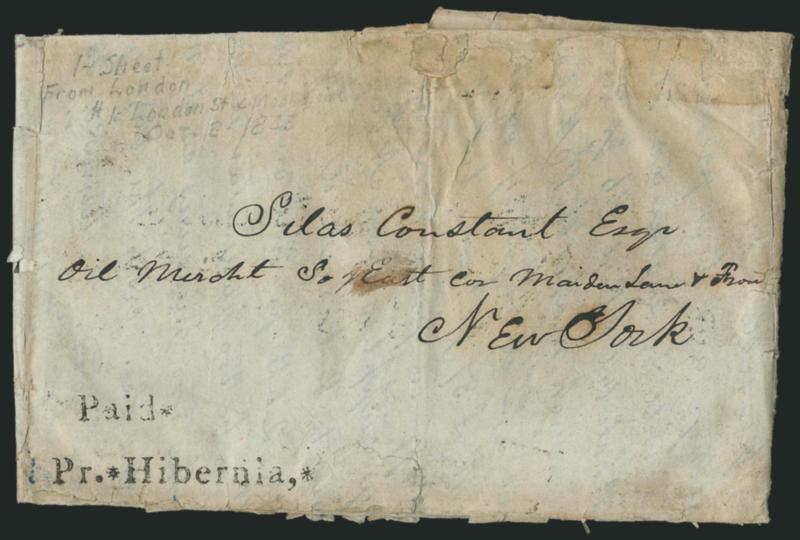 1 Sheet
From London
# 1 London St
Oct 18 1833
Silas Constant Esqr
Oil Mercht So East Cor Maiden Lane & Fron
New York
Paid*
Pr.*Hibernia,*